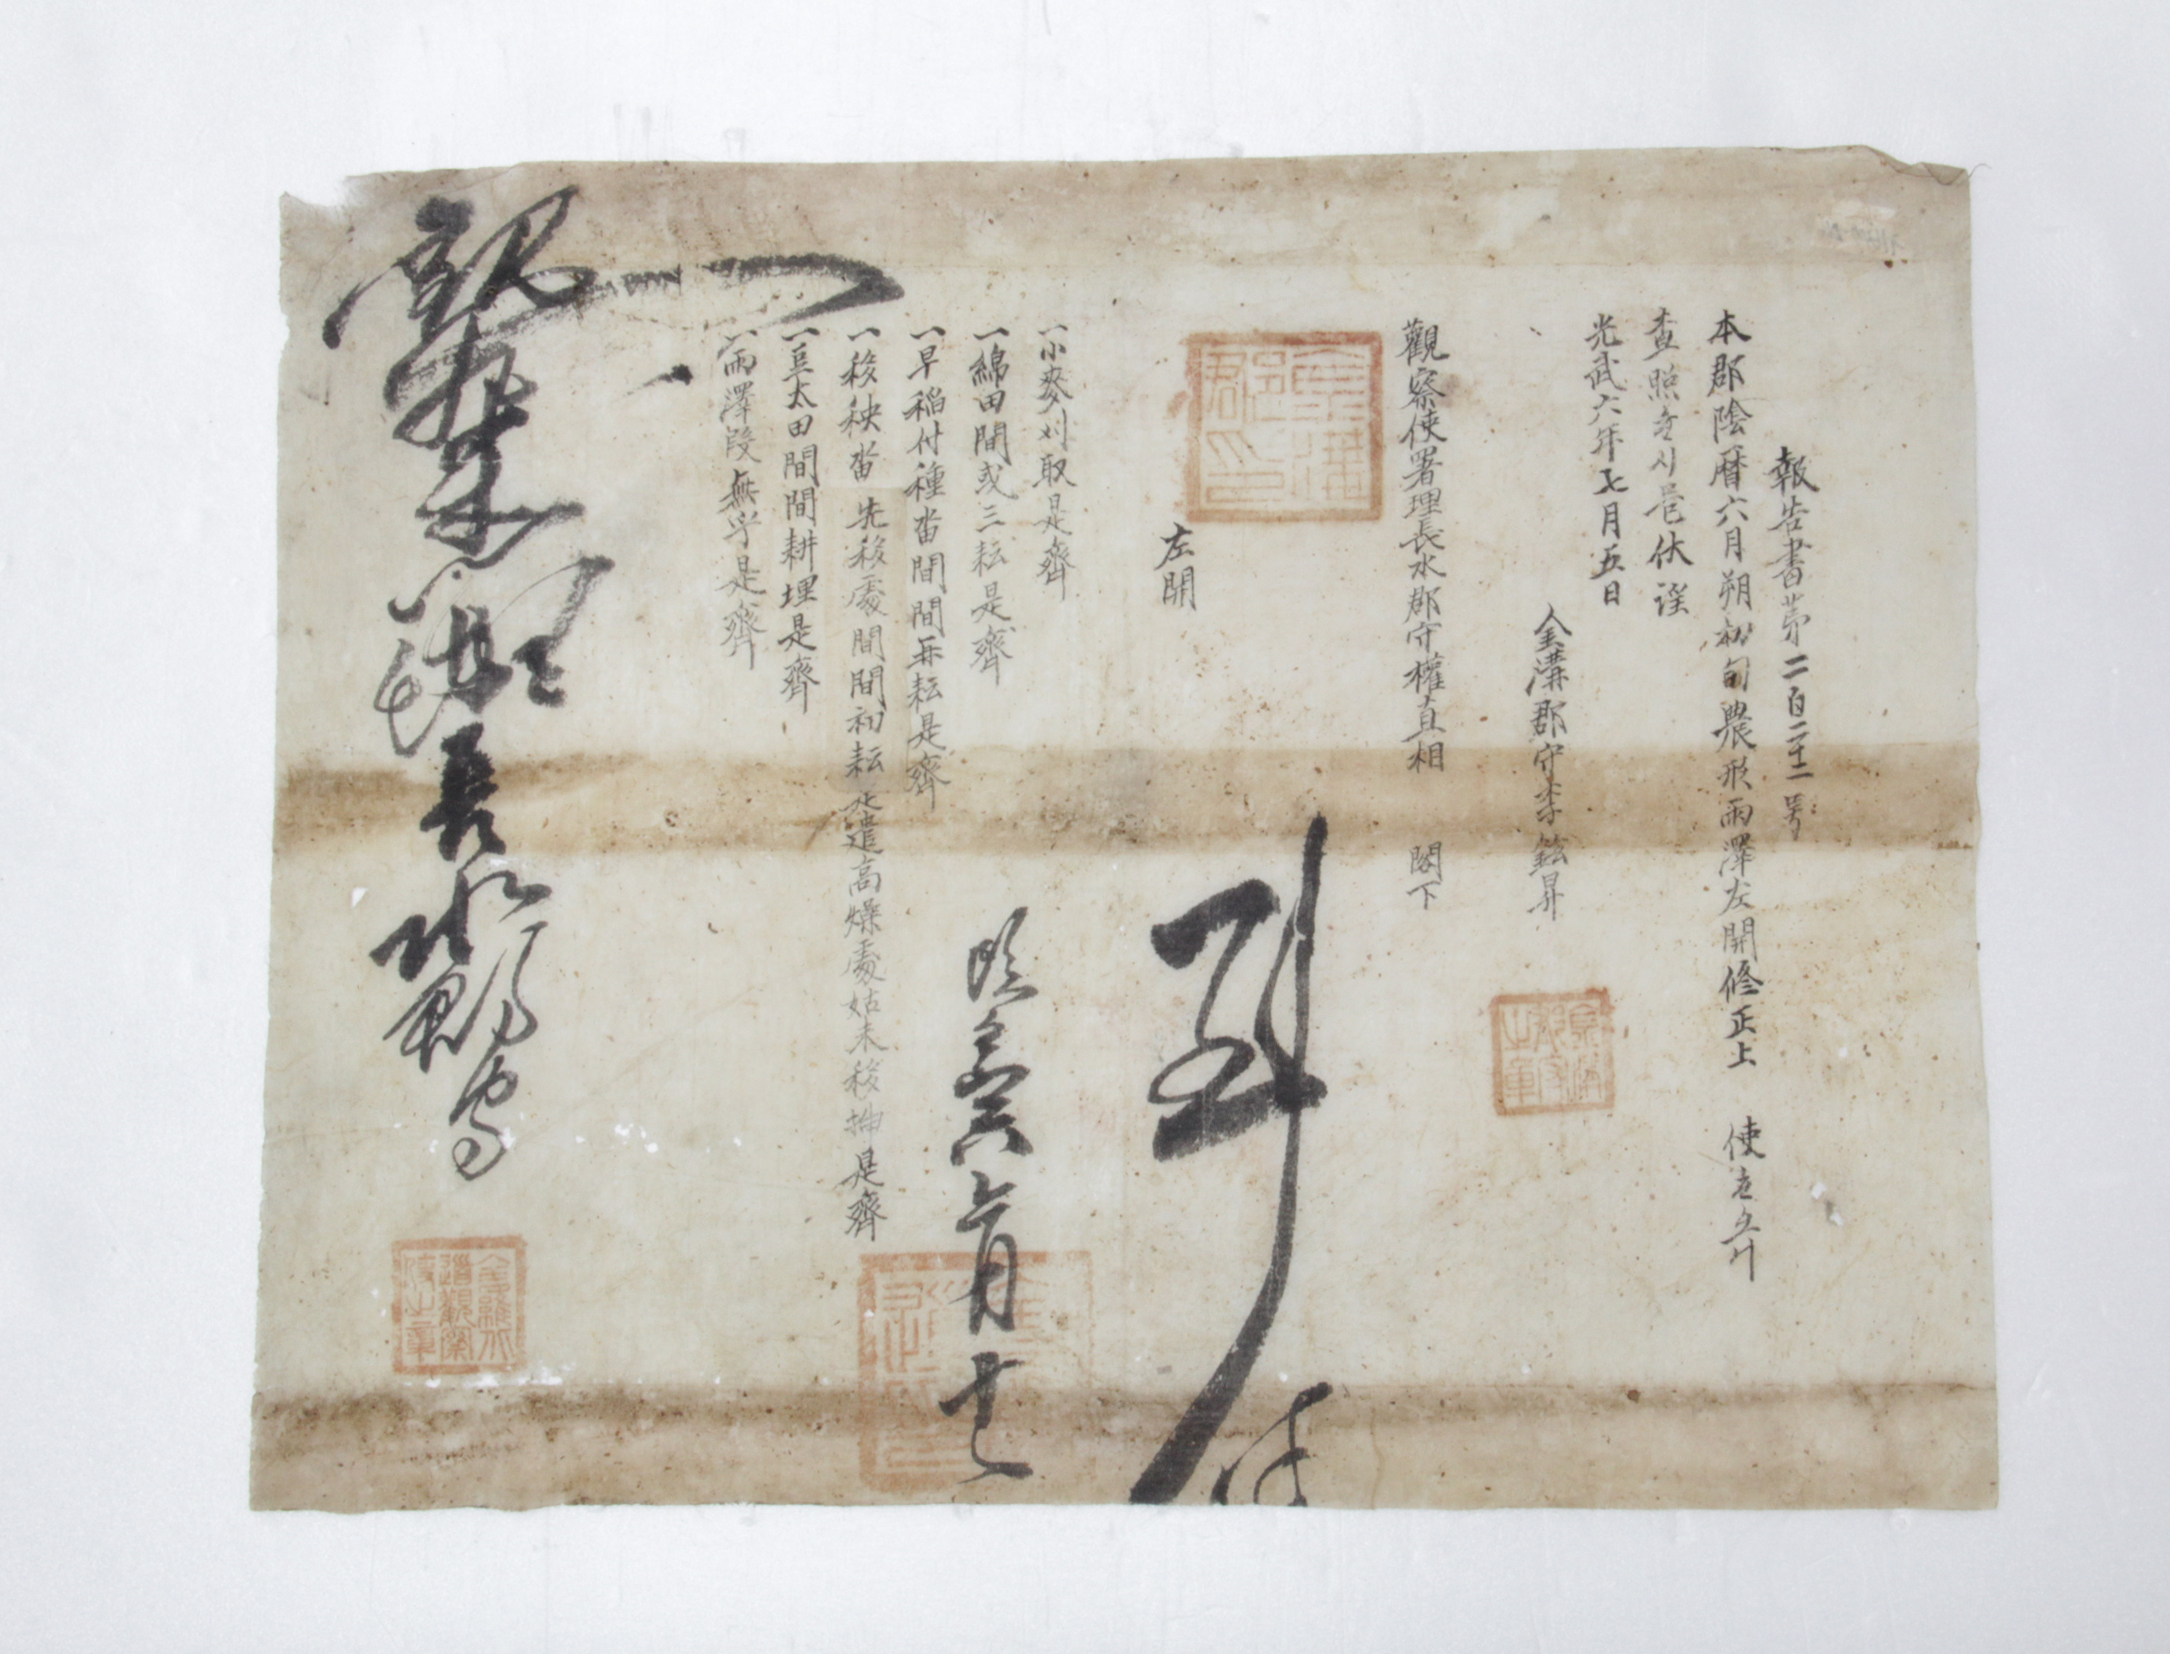 報告書第二百二十二号
本郡陰曆六月朔初旬農形雨澤左開修正上 使
査照 伏
光武六年七月五日
金溝郡守李鉉昇
觀察使署理長水郡守權直相 閣下
左開
一小麥刈取是齊
一綿田間或三耘是齊
一早稻付種畓間間再耘是齊
一移秧畓先移處間間初耘 是遣高燥處姑未移揷是齊
一豆太田間間耕埋是齊
一雨澤段無乎是齊
到付
六月
觀察 署 長水郡守